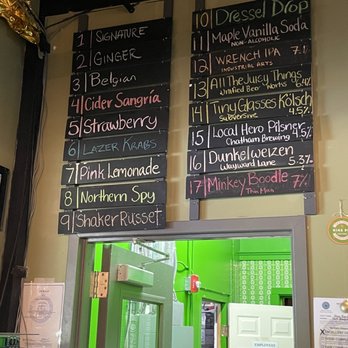 1 SIGNATURE
2 GINGER
3 Belgian
4 Cider Sangria
5 Strawberry
6 LAZER KRABS
7 Pink Lemonade
8 Northern Spy
9 Shaker Russet
10 Dressel Drop
11 Maple Vanilla Soda
NON-ALCOHOLIC
12 WRENCH IPA 7.1
INDUSTRIAL ARTS
13 All The Juicy Things
Unified Beer Works 6.4%
14 Tiny Glasses Kölsch
Subversive 4.5%
15 Local Hero Pilsner
Chatham Brewing 4.5%
16 Dunkelweizen
Wayward Lane 5.3%
17 Minkey Boodle
Thin Man 7%
EMPLOYEES